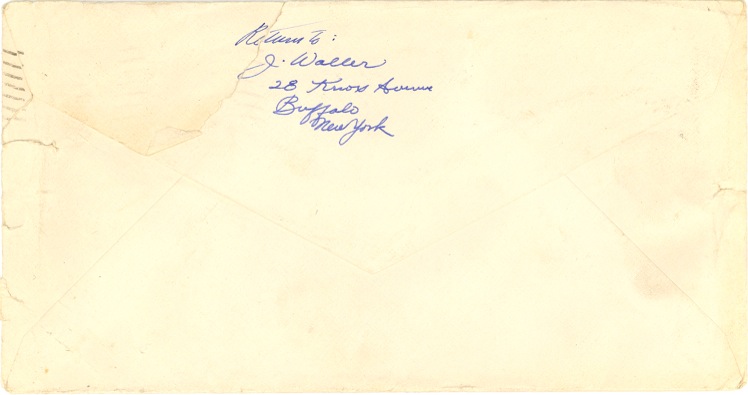 Return to:
J. Waller
28 Knox Avenue
Buffalo
New York